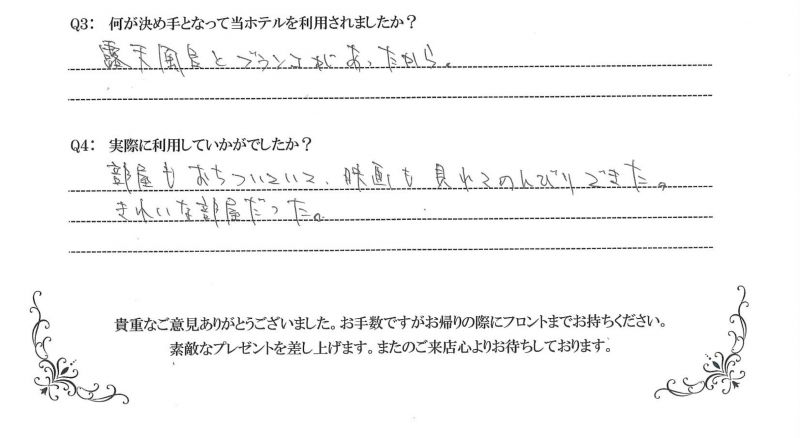 Q3: 何が決め手となって当ホテルを利用されましたか?
露天風呂とブランコがあったから。
Q4: 実際に利用していかがでしたか?
部屋もおちついていて、映画も見れてのんびりできた。
きれいな部屋だった。
貴重なご意見ありがとうございました。お手数ですがお帰りの際にフロントまでお持ちください。
素敵なプレゼントを差し上げます。またのご来店心よりお待ちしております。